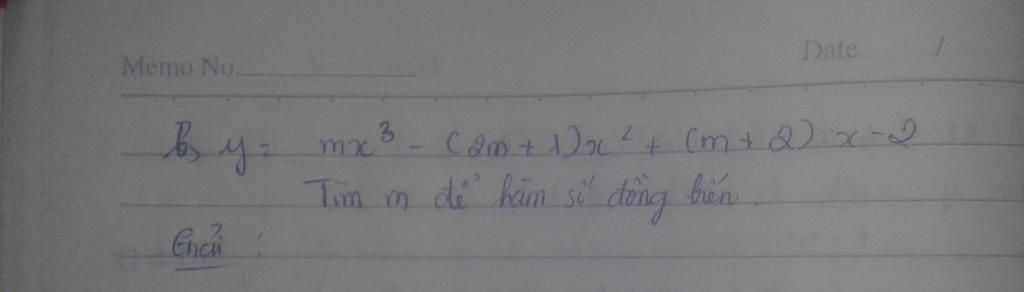 Memo No. Date /
b, y = mx³ - (2m + 1)x² + (m + 2) x - 2
Tìm m để hàm số đồng biến.
Giải :